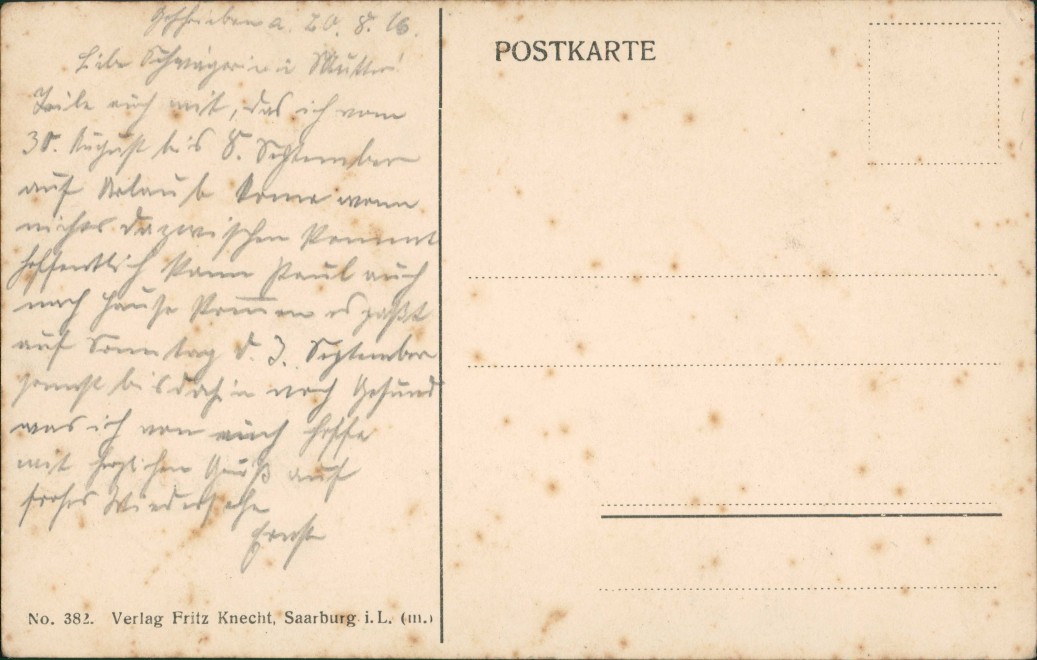 Geschrieben a. 20. 8. 16.
Liebe Schwägerin u Mutter!
Teile euch mit, das ich vom
30. August bis 8. September
auf Urlaub kome wenn
nichts dazwischen kommt
hoffentlich kann Paul auch
nach Hause kommen es paßt
auf Sonntag d. 3. September
bis dahin noch Gesund
was ich von euch hoffe
mit herzlichen Gruß auf
frohes Wiedersehn
Ernst
No. 382. Verlag Fritz Knecht, Saarburg i. L. (m.)
POSTKARTE